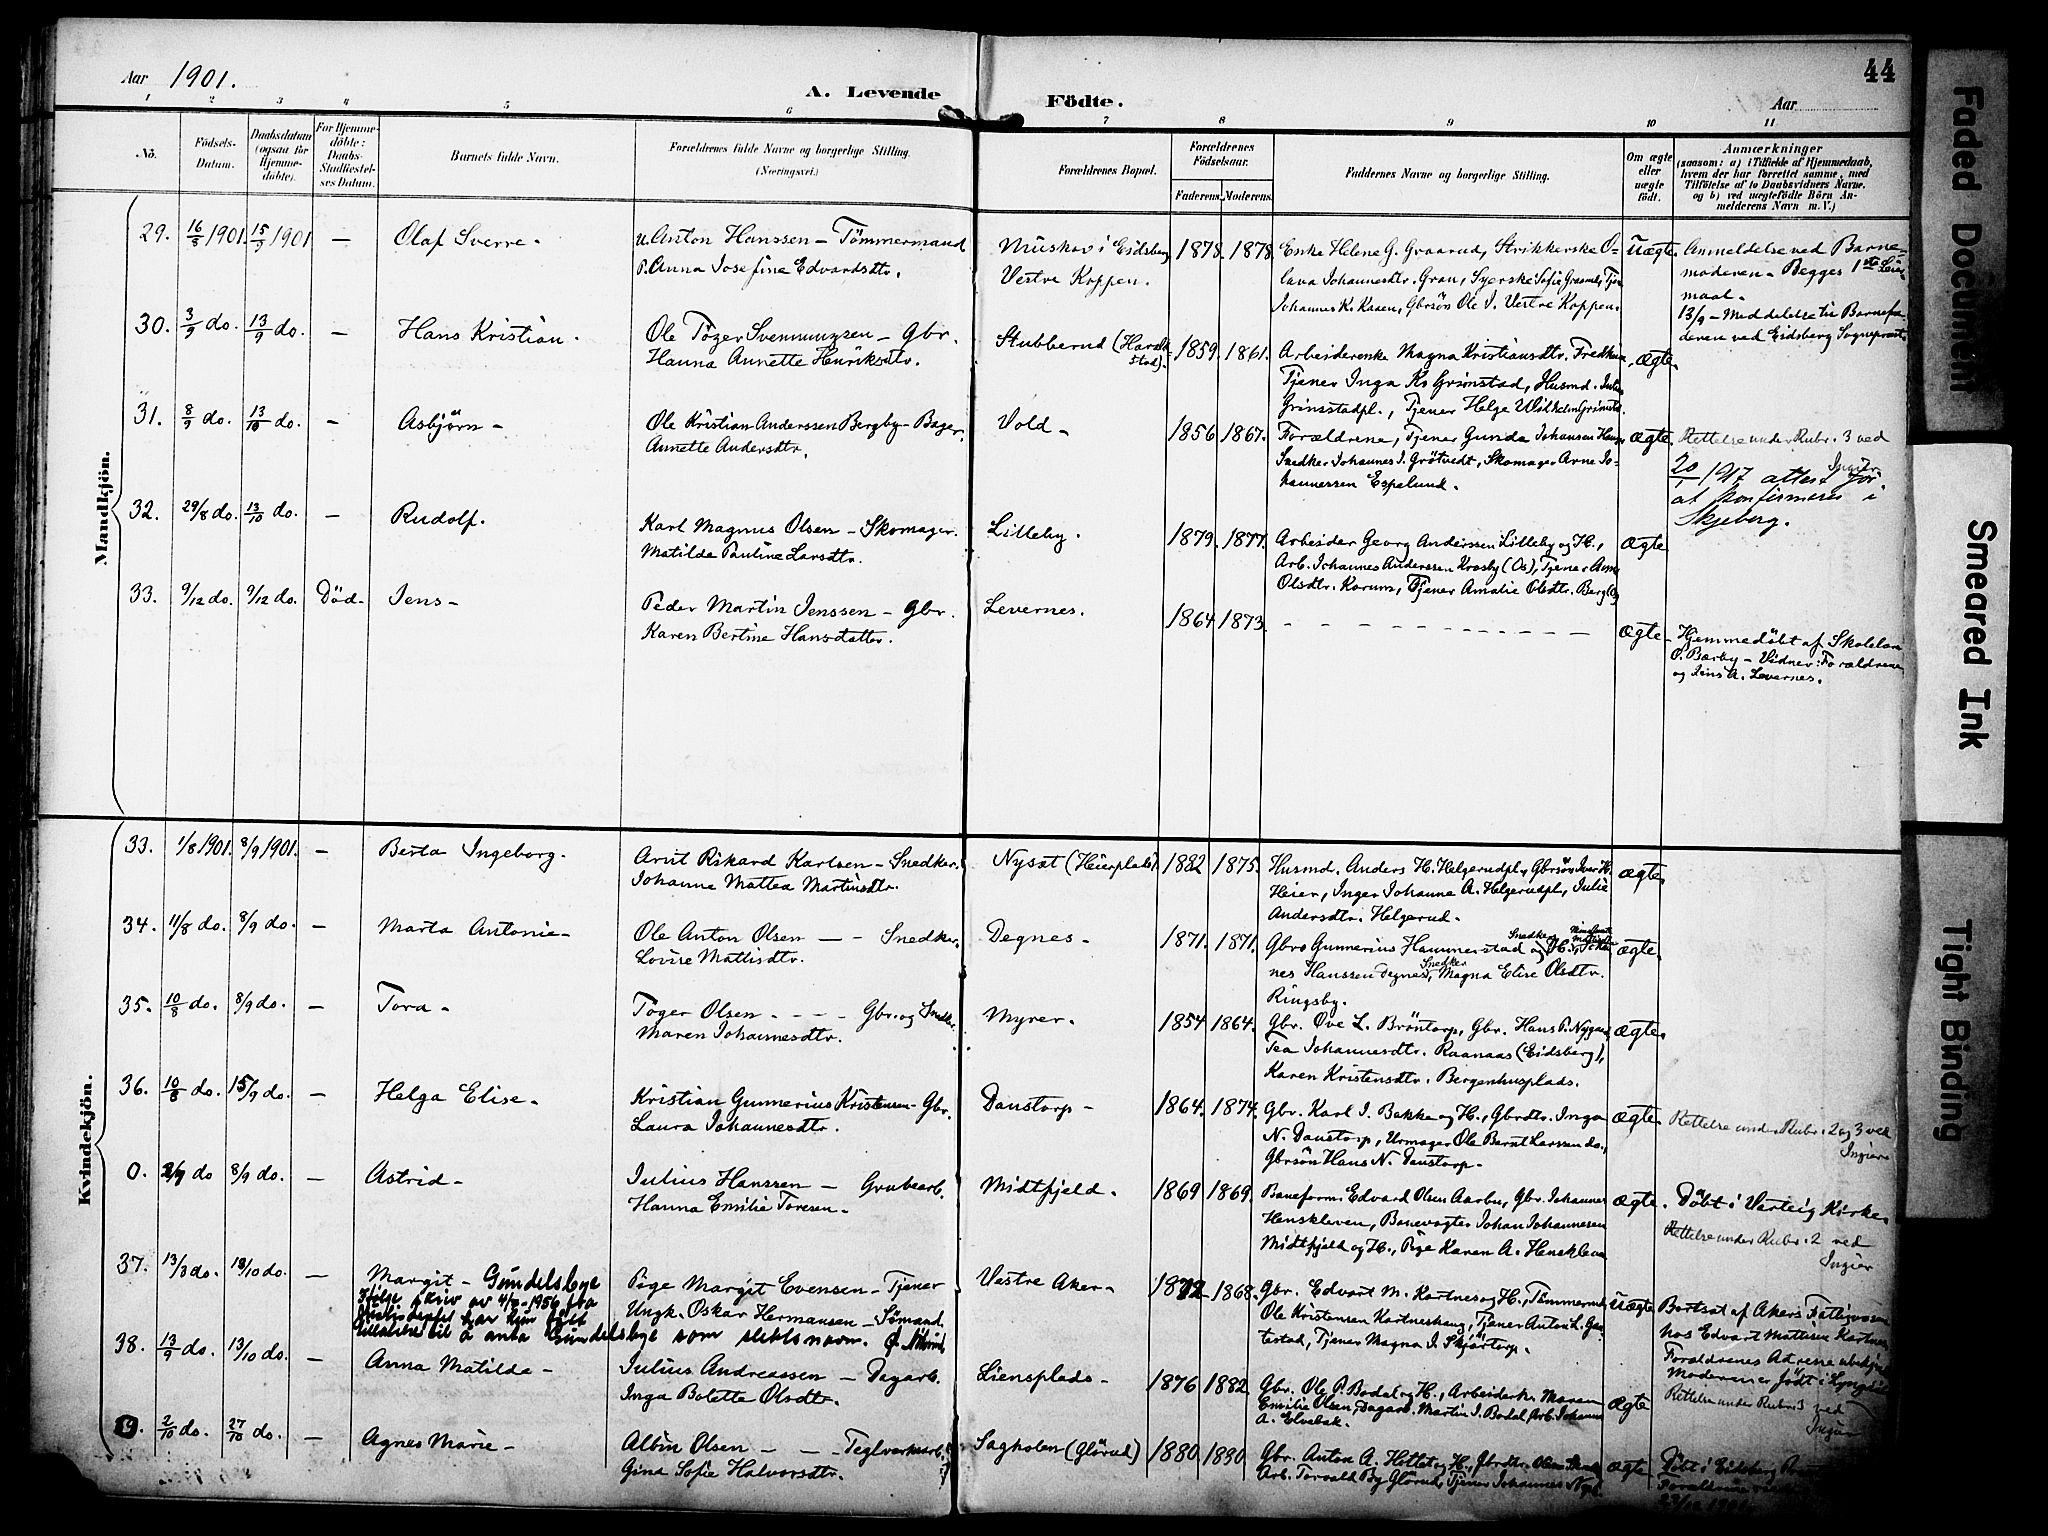 Aar 1901.
A. Levende Födte.
Aar
44
1 2 3 4 5 6 7 8 9 10 11
No.
Födsels-Datum.
Daabsdatum (ogsaa for Hjemme-döbte).
For Hjemme-döbte: Daabs-Stadfæstel-ses Datum.
Barnets fulde Navn.
Forældrenes fulde Navne og borgerlige Stilling.
(Næringsvei.)
Forældrenes Bopæl.
Forældrenes Födselsaar.
Faderens. Moderens.
Faddernes Navne og borgerlige Stilling.
Om ægte eller uægte födt.
Anmærkninger
(saasom: a) i Tilfælde af Hjemmedaab, hvem der har forrettet samme, med Tilföielse af to Daabsvidners Navne. og b) ved uægtefödte Börn An-melderens Navn m. V.)
Mandkjön.
29. 16/8 1901. 15/9 1901 — Olaf Sverre. U. Anton Hanssen — Tömmermand Muskov i Eidsberg 1878. 1878. Enke Helene G. Graarud, Strikkerske O- Uægte. Anmeldelse ved Barne-
P. Anna Josefine Edvardsdtr. Vestre Koppen. lava Johannesdtr. Gran, Syerske Sofie moderen. Begges 1ste Leier-
Johannes K. Kasen, Gbrsön Ole J. Vestre Koppen. maal.
13/9 — Meddelelse til Barnefa-
deren ved Eidsberg Sogneprest
30. 3/9 do. 13/9 do. — Hans Kristian. Ole Töger Svennungsen — Gbr. Stubberud (Harald- 1859. 1861. Arbeiderenke Magna Kristiansdtr. ægte.
Hanna Annette Henriksdtr. stad). Tjener Inga K. Grimstad, Husmd. Julius
Grimstadpl., Tjener Helge Wilhelm Grimst.
31. 8/9 do. 13/10 do. — Asbjørn — Ole Kristian Anderssen Bergby — Bager. Vold — 1856 1867. Forældrene, Tjener Gunda Johansen ægte. Rettelse under Rubr. 3 ved
Annette Andersdtr. Snedker Johannes J. Grötvedt, Skomager Arne Jo- Ingier
hannessen Espelund. 20/1 1917 attest for
at konfirmeres i
Skjeberg.
32. 29/8 do. 13/10 do. — Rudolf. Karl Magnus Olsen — Skomager. Lilleby. 1879. 1877. Arbeider Georg Anderssen Lilleby og H., ægte
Matilde Pauline Larsdtr. Arb. Johannes Anderssen Krosby (Os), Tjener Anne
Olsdtr. Korum, Tjener Amalie Olsdtr. Berg
33. 9/12 do. 9/12 do. Död — Jens — Peder Martin Jenssen — Gbr. Levernes. 1864 1873. — — — ægte — Hjemmedöbt af Skolelær
Karen Bertine Hansdatter. O. Bærby — Vidner: Forældrene
og Jens A. Levernes.
Kvindekjön.
33. 1/8 1901. 8/9 1901. — Berta Ingeborg. Arnt Rikard Karlsen — Snedker. Nysæt (Heierplads). 1882 1875. Husmd. Anders H. Helgerudpl., Gbrsön Iver H. ægte.
Johanne Mattea Martinsdtr. Heier, Inger Johanne A. Helgerudpl., Julie
Andersdtr. Helgerud.
34. 11/8 do. 8/9 do. — Marta Antonie — Ole Anton Olsen — Snedker. Degnes. 1871. 1871. Gbr. Gunnerius Hammerstad og H., Snedker ægte.
Lovise Mattisdtr. nes Hanssen Degnes, Snedker Magna Elise Olsdtr.
Ringsby.
35. 10/8 do. 8/9 do. — Tora — Töger Olsen — Gbr. og Snedker. Myrer. 1854 1864. Gbr. Ove L. Bröntorp, Gbr. Hans P. Nygaard ægte.
Maren Johannesdtr. Tea Johannesdtr. Raanaas (Eidsberg),
Karen Kristensdtr. Bergenhusplads.
36. 10/8 do. 15/9 do. — Helga Elise — Kristian Gunnerius Kristensen — Gbr. Danstorp — 1864. 1874. Gbr. Karl J. Bakke og H., Gbrdtr. Inga ægte. Rettelse under Rubr. 2 og 3 ved
Laura Johannesdtr. N. Danstorp, Urmager Ole Bernt Larssen do., Ingier
Gbrsön Hans N. Danstorp.
0. 2/9 do 8/9 do. — Astrid — Julius Hanssen — Grubearb. Midtfjeld. 1869 1869. Baneform. Edvard Olsen Aarbu, Gbr. Johannes ægte. Döbt i Varteig Kirke.
Hanna Emilie Toresen — Henskleven, Banevogter Johan Johannesen Rettelse under Rubr. 2 ved
Midtfjeld og H., Pige Karen A. Henskleven Ingier
37. 13/3 do. 13/10 do. — Margit — Gundelsbye Pige Margit Evensen — Tjener Vestre Aker — 1872 1868. Gbr. Edvart M. Kartnes og H., Tömmermd. Uægte Bortsat af Akers Fattigvæsen
Ifølge skriv av 4/ -1956 fra Ungk. Oskar Hermansen — Sømand. Ole Kristensen Kartneshaug, Tjener Anton L. hos Edvart Mattisen Kartnes
har hun fått testad, Tjener Magna J. Skjörtorp. Forældrenes Adresse ubekjendt
tillatelse til å anta Gundelsbye som slektsnavn. Moderen er født i Lyngdal
38. 13/9 do. 13/10 do. — Anna Matilde — Julius Andreassen — Dagarb. Liensplads — 1876 1882. Gbr. Ole P. Bodal og H., Arbeiderk. Maren ægte Rettelse under Rubr. 3 ved
Inga Bolette Olsdtr. Emilie Olsen, Dagarb. Martin J. Bodal, Arb. Johannes Ingier
A. Elvebak.
2/10 do. 27/10 do. — Agnes Marie — Albin Olsen — Teglverksarb. Sagholen (Glörud) 1880 1880. Gbr. Anton A. Hettet og H., Gbrdtr. ægte Döbt i Eidsberg
Gina Sofie Halvorsdtr. Arb. Torvald By Glörud, Tjener Johannes Forældrene
Faded Document
Smeared Ink
Tight Binding